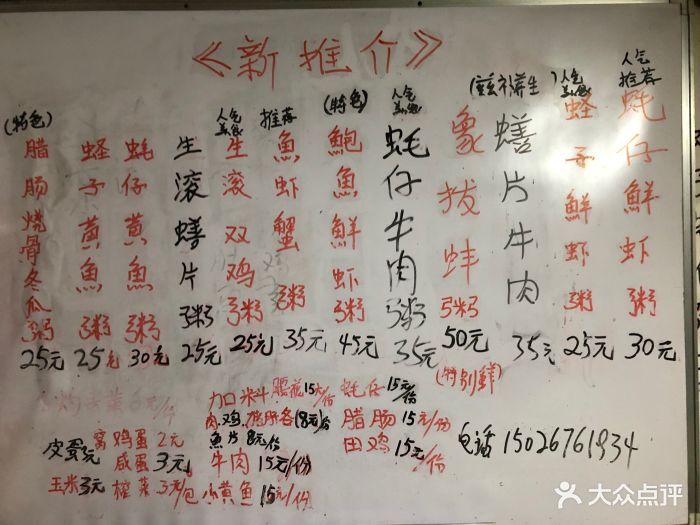 《新推介》
(特色)
腊肠烧骨冬瓜粥
25元
蛏子黄魚粥
25元
蚝仔黄魚粥
30元
生滚鳝片粥
25元
人气美食
生滚双鸡粥
25元
推荐
魚虾蟹粥
35元
(特色)
鮑魚鮮虾粥
45元
人气美食
蚝仔牛肉粥
35元
象拔蚌粥
50元
(特别鲜)
(滋补养生)
鳝片牛肉
35元
人气美食
蛏子鮮虾粥
25元
人气推荐
蚝仔鮮虾粥
30元
加口料
腰花15元/份
蚝仔15元/份
肉.鸡.猪肝各(8元)份
腊肠15元/份
魚片8元/份
田鸡15元/份
牛肉15元/份
小黄魚15元/份
窝鸡蛋2元
皮蛋
元
咸蛋3元
玉米3元
榨菜3元/包
电话15026761934
大众点评